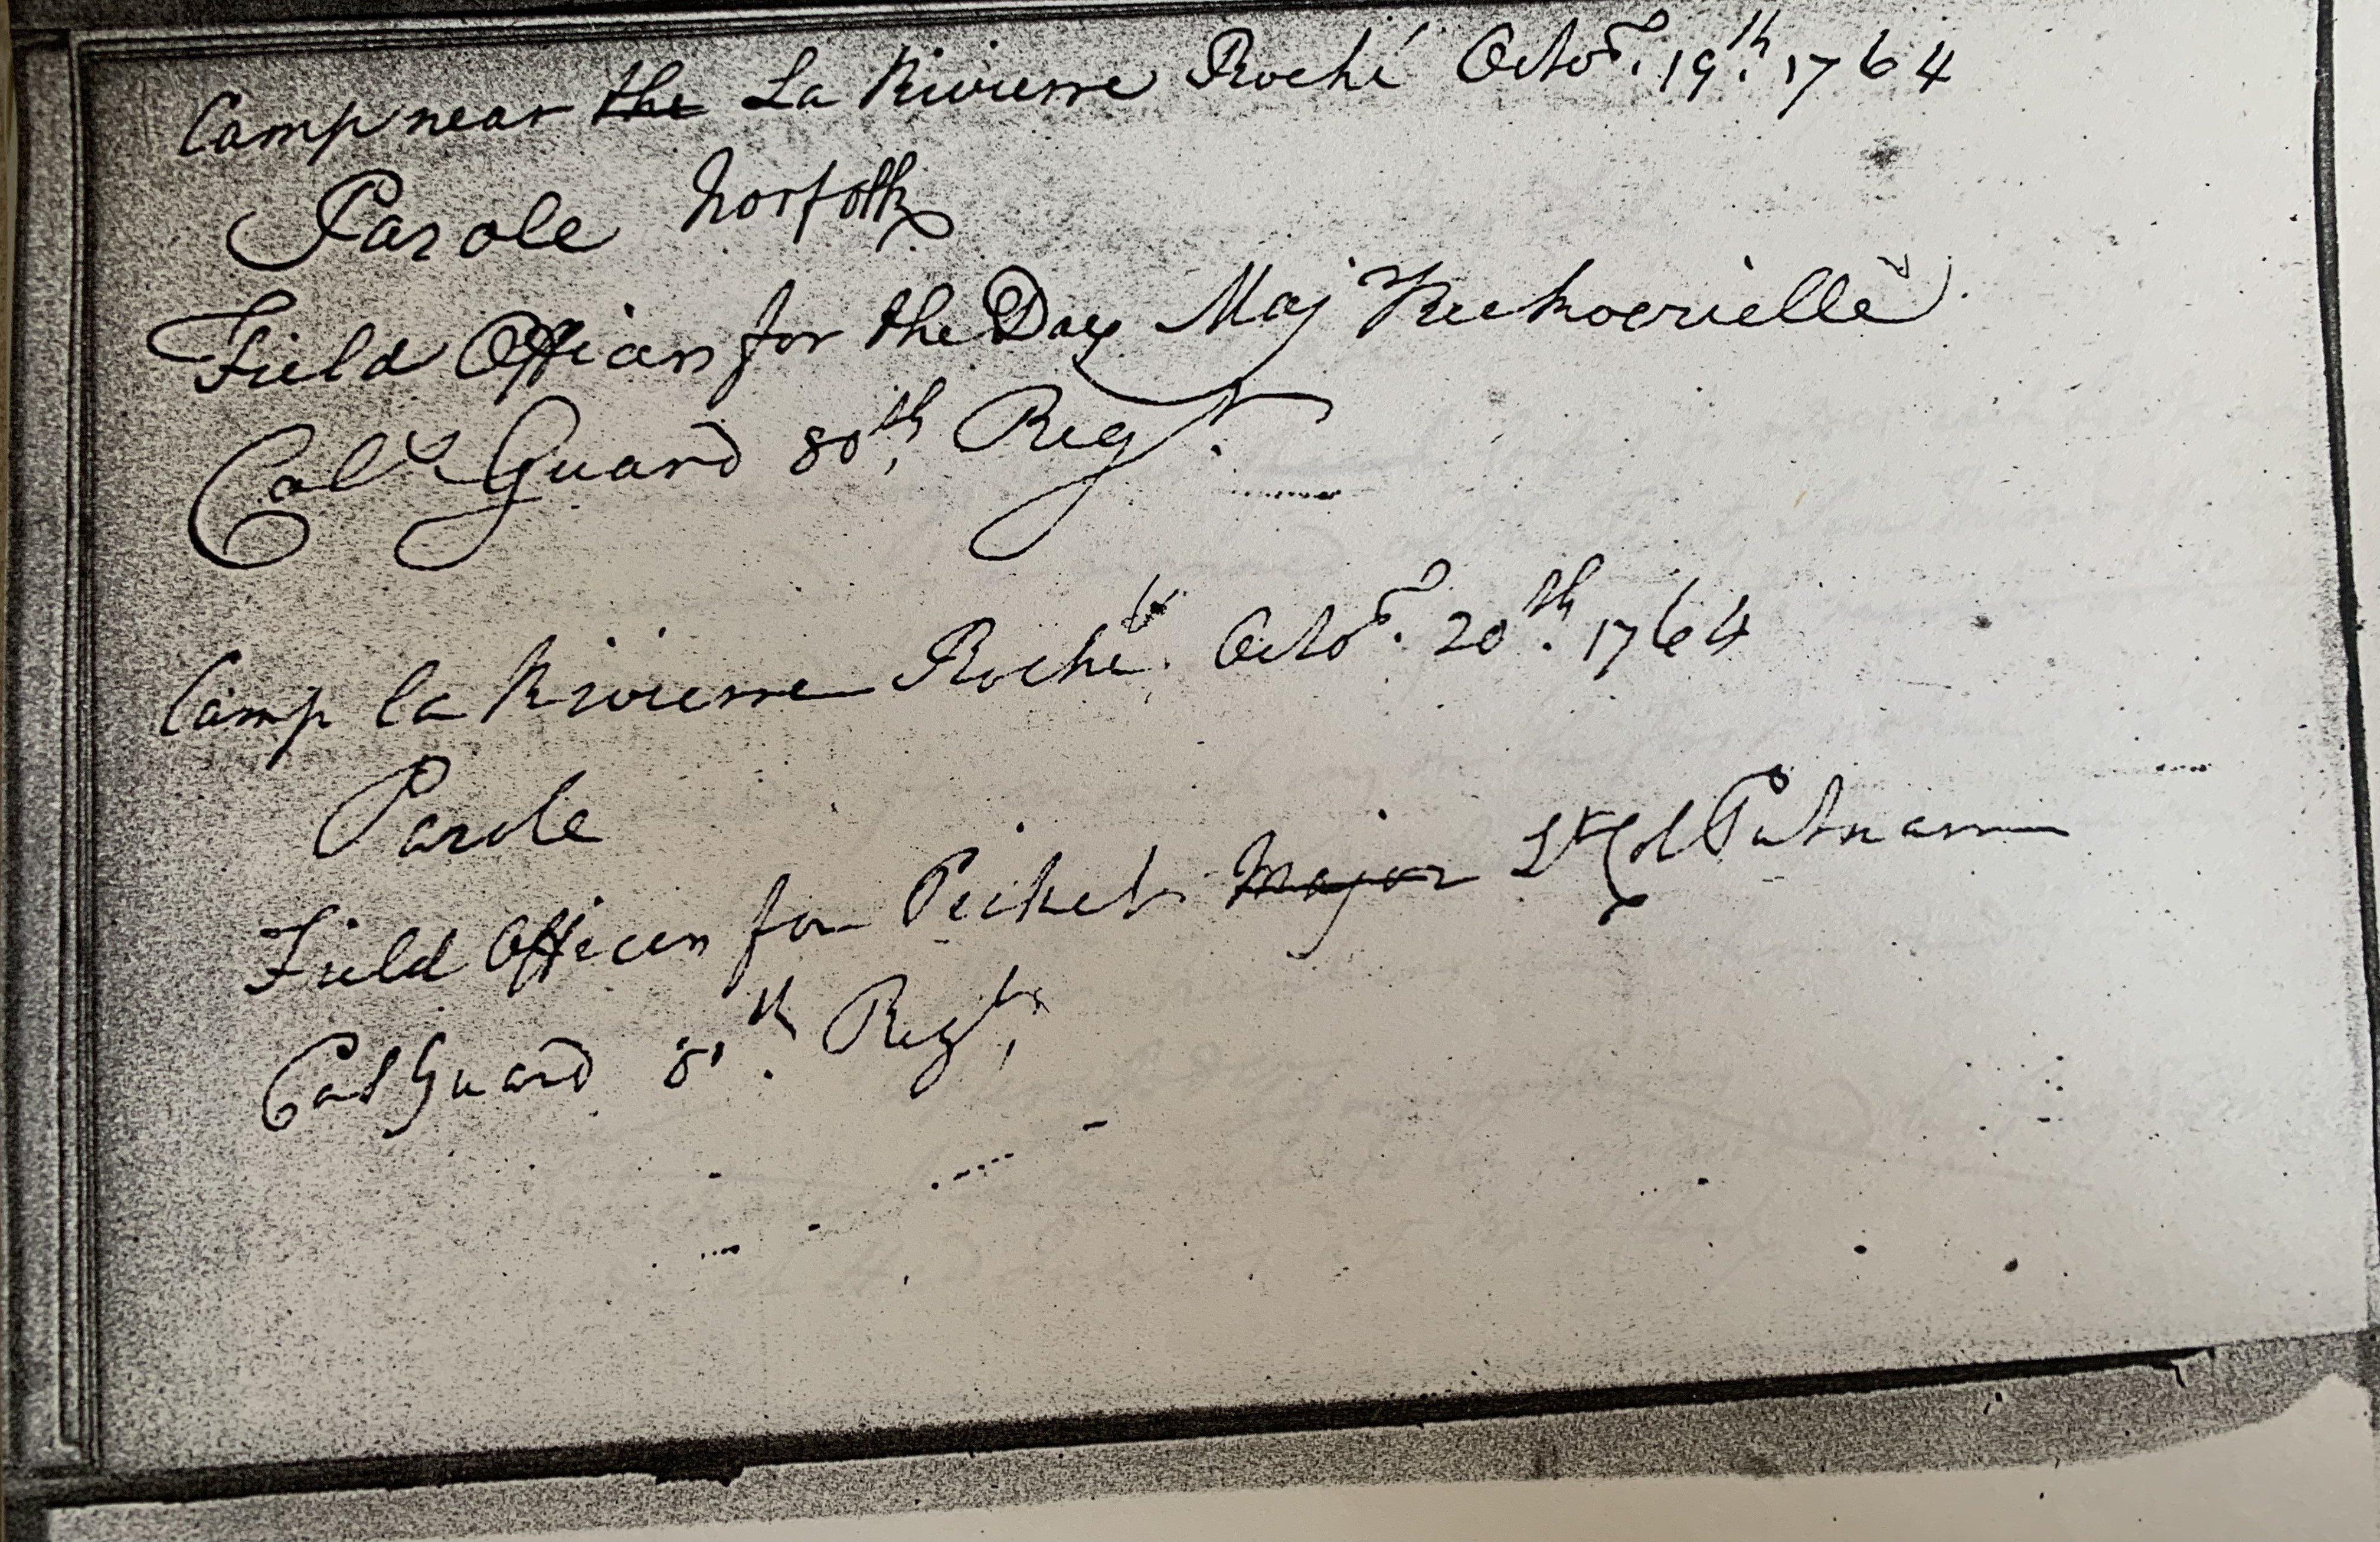 Camp near the La Rivierre Roché Octor. 19th. 1764
Parole Norfolk
Field Officer for the Day Maj
Colo. Guard 80th. Regt.
Camp la Rivierre Roché. Octor. 20th. 1764
Parole
Field Officer for Picket Major Lt Col Putnam
Col Guard 80th. Regt,